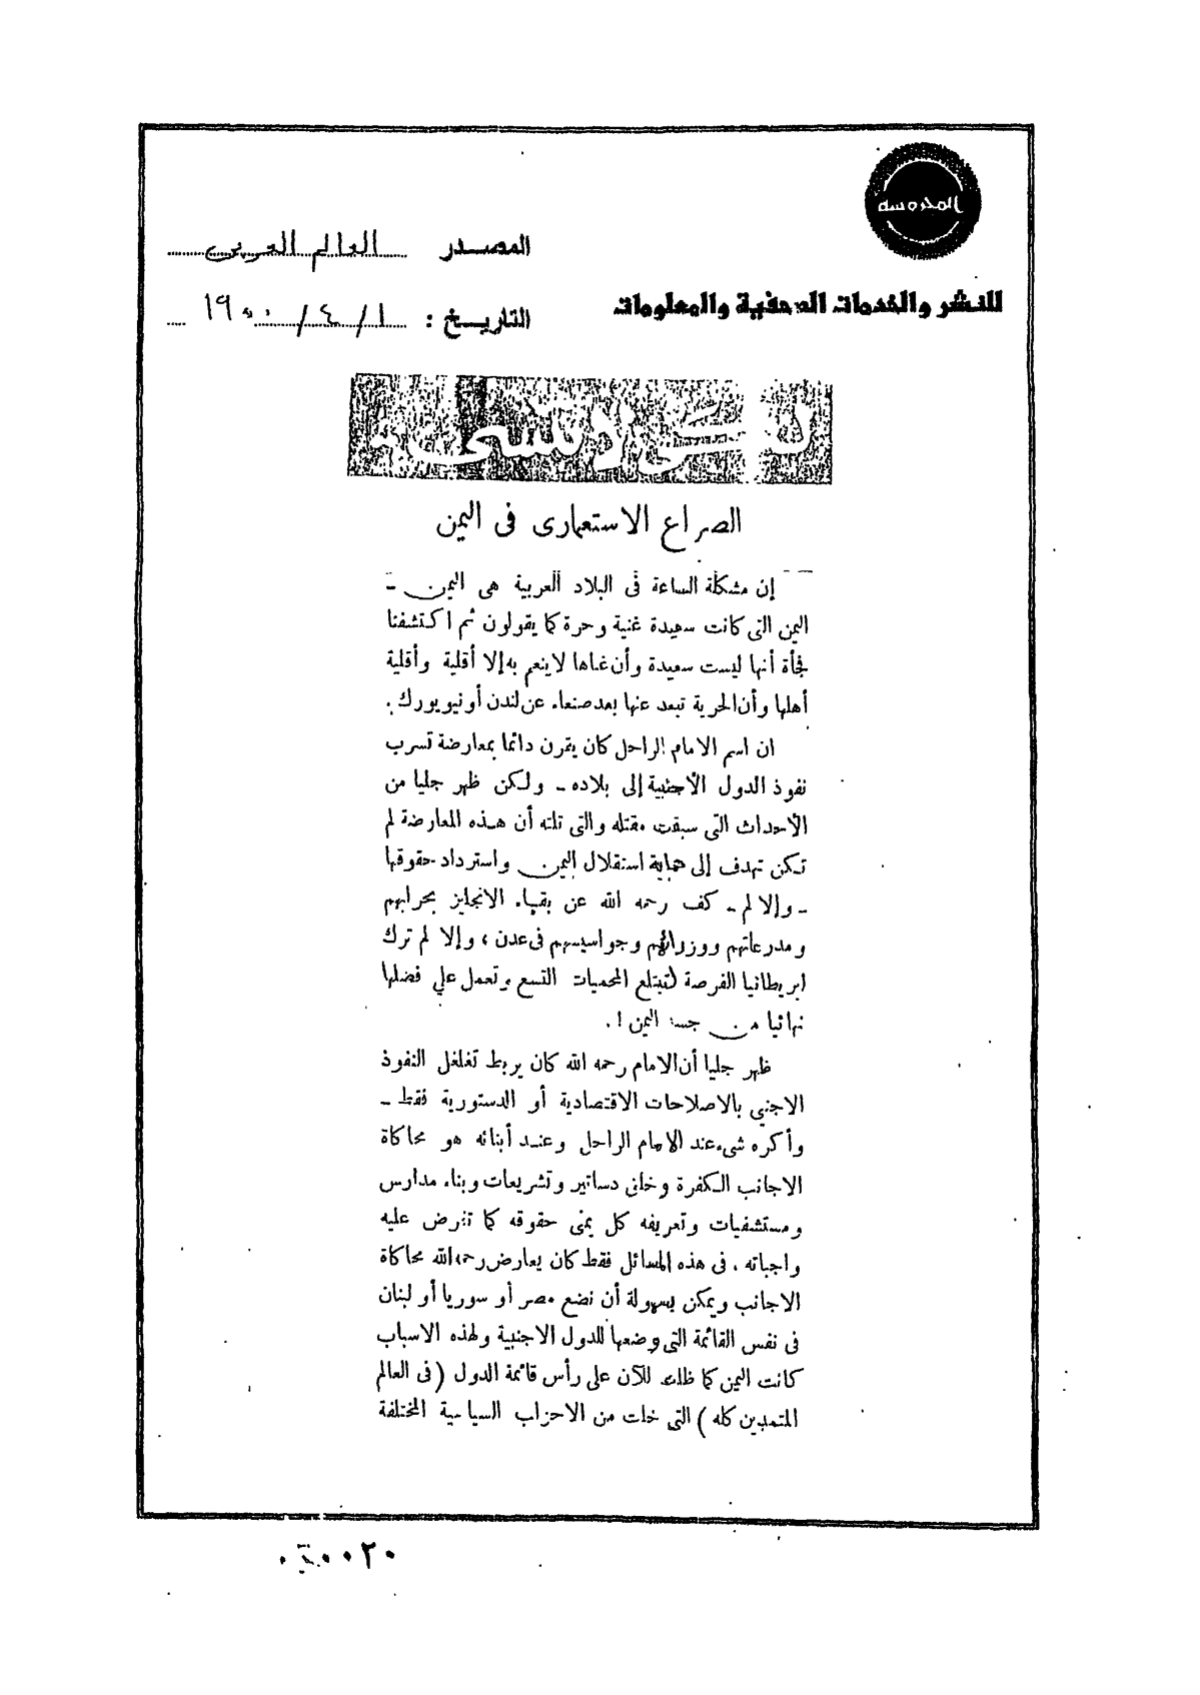 المحروسة
للنشر والخدمات الصحفية والمعلومات
المصدر العالم العربي
التاريخ : ١ / ٤ / ١٩
لا ننسى
الصراع الاستعمارى فى اليمن
إن مشكلة الساعة فى البلاد العربية هى اليمن -
اليمن التى كانت سعيدة غنية وحرة كما يقولون ثم اكتشفنا
فجأة أنها ليست سعيدة وأن غناها لا ينعم به إلا أقلية وأقلية
أهلها وأن الحرية تبعد عنها بعد صنعاء عن لندن أو نيويورك .
ان اسم الامام الراحل كان يقرن دائما بمعارضة تسرب
نفوذ الدول الأجنبية إلى بلاده - ولكن ظهر جليا من
الأحداث التى سبقت مقتله والتى تلته أن هذه المعارضة لم
تكن تهدف إلى حماية استقلال اليمن واسترداد حقوقها
- وإلا لم - كف رحمه الله عن بقاء الانجليز بحرابهم
ومدرعاتهم ووزرائهم وجواسيسهم فى عدن ، وإلا لم ترك
ابريطانيا الفرصة لتبتلع المحميات التسع وتعمل على فصلها
نهائيا من جسد اليمن ! .
ظهر جليا أن الامام رحمه الله كان يربط تغلغل النفوذ
الاجنبى بالاصلاحات الاقتصادية أو الدستورية فقط -
وأكره شىء عند الامام الراحل وعند أبنائه هو محاكاة
الاجانب الكفرة وخلق دساتير وتشريعات وبناء مدارس
ومستشفيات وتعريفه كل يمنى حقوقه كما تفرض عليه
واجباته . فى هذه المسائل فقط كان يعارض رحمه الله محاكاة
الاجانب ويمكن بسهولة أن نضع مصر أو سوريا أو لبنان
فى نفس القائمة التى وضعها للدول الاجنبية ولهذه الاسباب
كانت اليمن كما ظلت للآن على رأس قائمة الدول ( فى العالم
المتمدين كله ) التى خلت من الاحزاب السياسية المختلفة